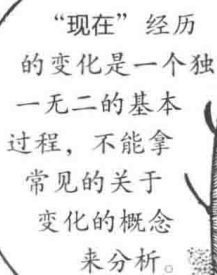 “现在”经历
的变化是一个独
一无二的基本
过程，不能拿
常见的关于
变化的概念
来分析。